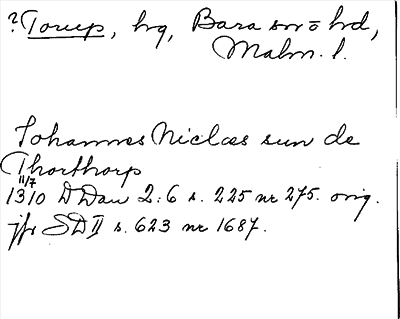 ?Torup, hg, Bara sn o hd,
Malm. l.
Johannes Niclæs sun de
Thorthorp
11/7
1310 DDan 2:6 s. 225 nr 275. orig.
jfr SD II s. 623 nr 1687.